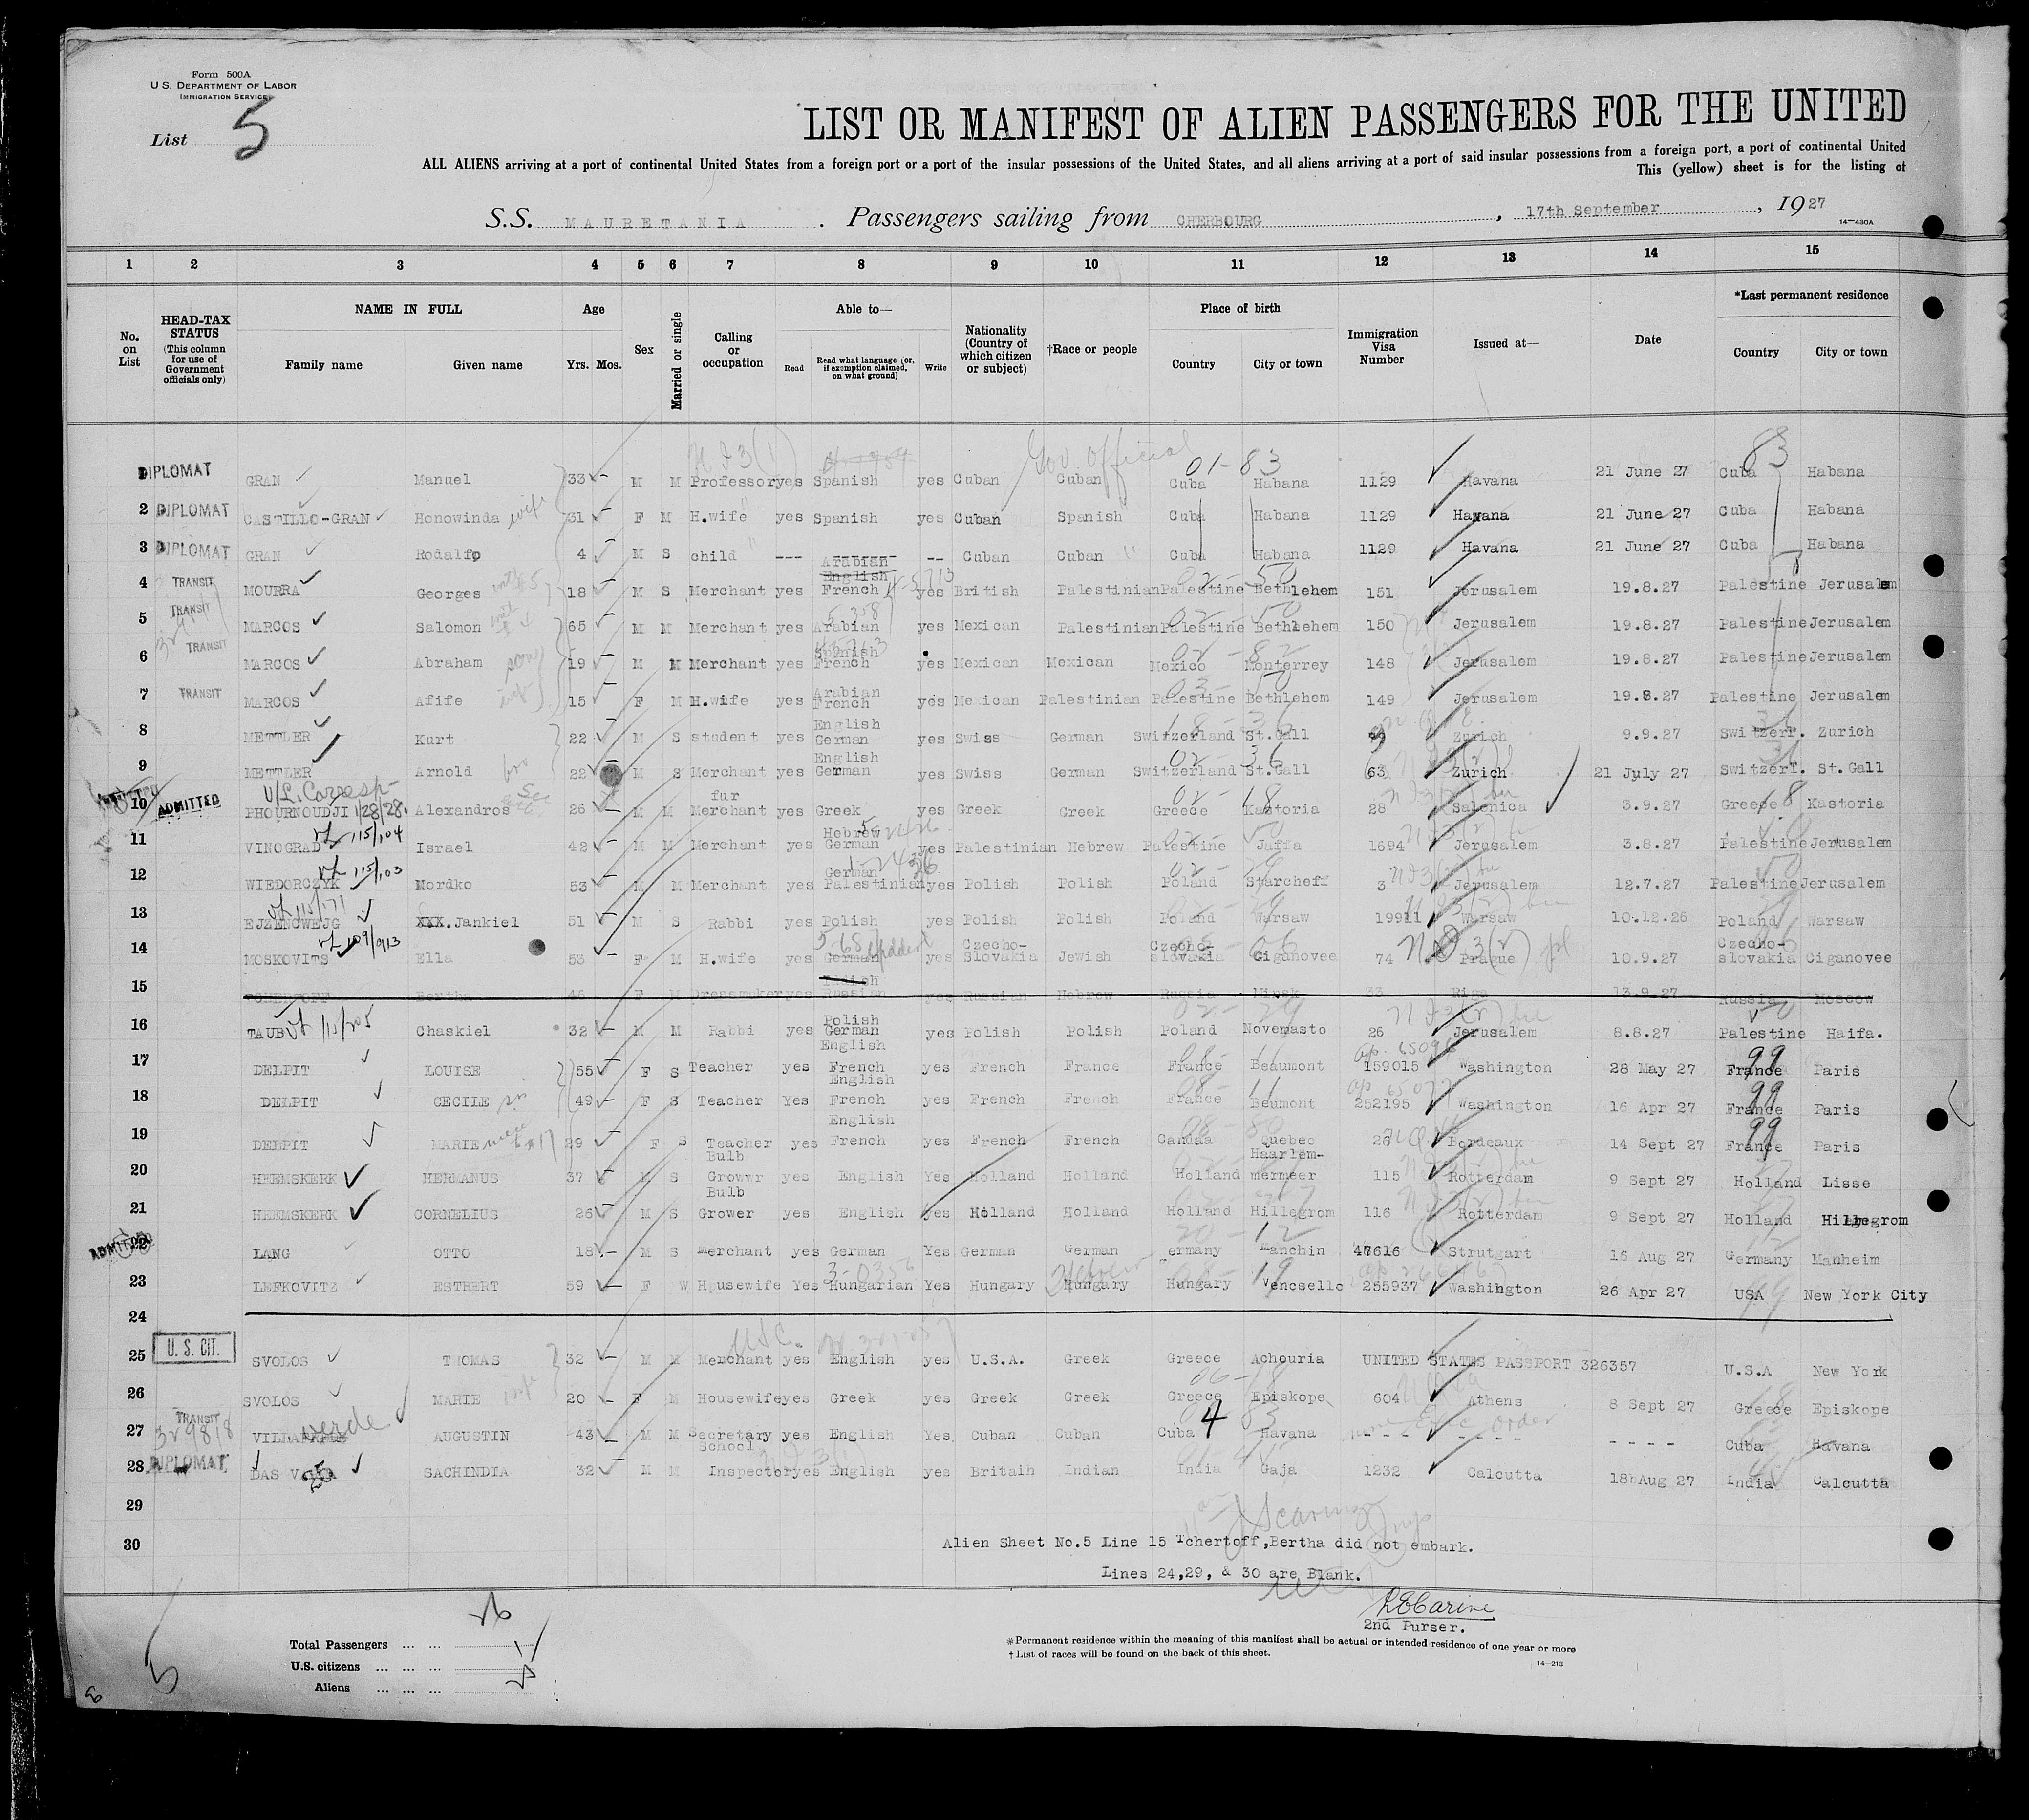 Form 500A
U. S. DEPARTMENT OF LABOR
IMMIGRATION SERVICE
List 5
LIST OR MANIFEST OF ALIEN PASSENGERS FOR THE UNITED
ALL ALIENS arriving at a port of continental United States from a foreign port or a port of the insular possessions of the United States, and all aliens arriving at a port of said insular possessions from a foreign port, a port of continental United
This (yellow) sheet is for the listing of
S.S. MAURETANIA . Passengers sailing from CHERBOURG , 17th September , 1927
14—430A
1 2 3 4 5 6 7 8 9 10 11 12 13 14 15
No. on List
HEAD-TAX STATUS (This column for use of Government officials only)
NAME IN FULL Family name Given name
Age Yrs. Mos.
Sex
Married or single
Calling or occupation
Able to— Read Read what language (or, if exemption claimed, on what ground) Write
Nationality (Country of which citizen or subject)
†Race or people
Place of birth Country City or town
Immigration Visa Number
Issued at—
Date
*Last permanent residence Country City or town
Gov. Official 01-83 83
DIPLOMAT GRAN Manuel 33 M M Professor yes Spanish yes Cuban Cuban Cuba Habana 1129 Havana 21 June 27 Cuba Habana
2 DIPLOMAT CASTILLO-GRAN Honowinda wife 31 F M H.wife yes Spanish yes Cuban Spanish Cuba Habana 1129 Havana 21 June 27 Cuba Habana
3 DIPLOMAT GRAN Rodalfo 4 M S child --- ---- -- Cuban Cuban Cuba Habana 1129 Havana 21 June 27 Cuba Habana
4 TRANSIT MOURRA Georges 18 M S Merchant yes Arabian English French yes British Palestinian Palestine Bethlehem 151 Jerusalem 19.8.27 Palestine Jerusalem
5 TRANSIT MARCOS Salomon 65 M M Merchant yes Arabian yes Mexican Palestinian Palestine Bethlehem 150 Jerusalem 19.8.27 Palestine Jerusalem
6 TRANSIT MARCOS Abraham son 19 M M Merchant yes Spanish French yes Mexican Mexican Mexico Monterrey 148 Jerusalem 19.8.27 Palestine Jerusalem
7 TRANSIT MARCOS Afife wife 15 F M H.wife yes Arabian French yes Mexican Palestinian Palestine Bethlehem 149 Jerusalem 19.8.27 Palestine Jerusalem
8 METTLER Kurt 22 M S student yes English German yes Swiss German Switzerland St.Gall Zurich 9.9.27 Switzerl. Zurich
9 METTLER Arnold bro 22 M S Merchant yes English German yes Swiss German Switzerland St.Gall 63 Zurich 21 July 27 Switzerl. St.Gall
V/L. Corresp- 1/28/28.
10 ADMITTED PHOURNOUDJI Alexandros 26 M M fur Merchant yes Greek yes Greek Greek Greece Kastoria 28 Salonica 3.9.27 Greece Kastoria
11 VINOGRAD VL 115/104 Israel 42 M M Merchant yes Hebrew German yes Palestinian Hebrew Palestine Jaffa 1694 Jerusalem 3.8.27 Palestine Jerusalem
12 WIEDORCZYK VL 115/103 Mordko 53 M M Merchant yes German Palestinian yes Polish Polish Poland Starcheff 3 Jerusalem 12.7.27 Palestine Jerusalem
13 EJZENGWEJG VL 115/171 XXX.Jankiel 51 M S Rabbi yes Polish yes Polish Polish Poland Warsaw 19911 Warsaw 10.12.26 Poland Warsaw
14 MOSKOVITS VL 109/913 Ella 53 F M H.wife yes German yes Czecho-slovakia Jewish Czecho-slovakia Ciganovee 74 Prague 10.9.27 Czecho-slovakia Ciganovee
15 TCHERTOFF Bertha 46 F M Dressmaker yes Yidish Russian yes Russian Hebrew Russia Minsk 33 Riga 13.9.27 Russia Moscow
16 TAUB VL 115/205 Chaskiel 32 M M Rabbi yes Polish German English yes Polish Polish Poland Novemasto 26 Jerusalem 8.8.27 Palestine Haifa.
17 DELPIT LOUISE 55 F S Teacher yes French English yes French France France Beaumont 159015 Washington 28 May 27 France Paris
18 DELPIT CECILE sis 49 F S Teacher Yes French yes French French France Beumont 252195 Washington 16 Apr 27 France Paris
19 DELPIT MARIE niece to #17 29 F S Teacher yes English French yes French French Candaa Quebec 26 Bordeaux 14 Sept 27 France Paris
20 HEEMSKERK HERMANUS 37 M S Bulb Growwr yes English Yes Holland Holland Holland Haarlem-mermeer 115 Rotterdam 9 Sept 27 Holland Lisse
21 HEEMSKERK CORNELIUS 26 M S Bulb Grower yes English yes Holland Holland Holland Hillegrom 116 Rotterdam 9 Sept 27 Holland Hillegrom
22 ADMITTED LANG OTTO 18 M S Merchant yes German Yes German German ermany Manchin 47616 Strutgart 16 Aug 27 Germany Manheim
23 LEFKOVITZ ESTHERT 59 F W Housewife Yes Hungarian Yes Hungary Hungary Hungary Vencsello 255937 Washington 26 Apr 27 USA New York City
24
25 U. S. CIT. SVOLOS THOMAS 32 M M Merchant yes English yes U.S.A. Greek Greece Achouria UNITED STATES PASSPORT 326357 U.S.A New York
26 SVOLOS MARIE wife 20 F M Housewife yes Greek yes Greek Greek Greece Episkope 604 Athens 8 Sept 27 Greece Episkope
27 TRANSIT 3r9818 verde AUGUSTIN 43 M M Secretary yes English Yes Cuban Cuban Cuba Havana - - - - - - - - - - - - Cuba Havana
28 DIPLOMAT DAS SACHINDIA 32 M M School Inspector yes English yes Britaih Indian India Gaja 1232 Calcutta 18 Aug 27 India Calcutta
29
30
Alien Sheet No.5 Line 15 Tchertoff,Bertha did not embark.
Lines 24,29, & 30 are Blank.
2nd Purser.
Total Passengers ... ... 26
U.S. citizens ... ... ... 1
Aliens ... ... ...
*Permanent residence within the meaning of this manifest shall be actual or intended residence of one year or more
† List of races will be found on the back of this sheet.
14—213